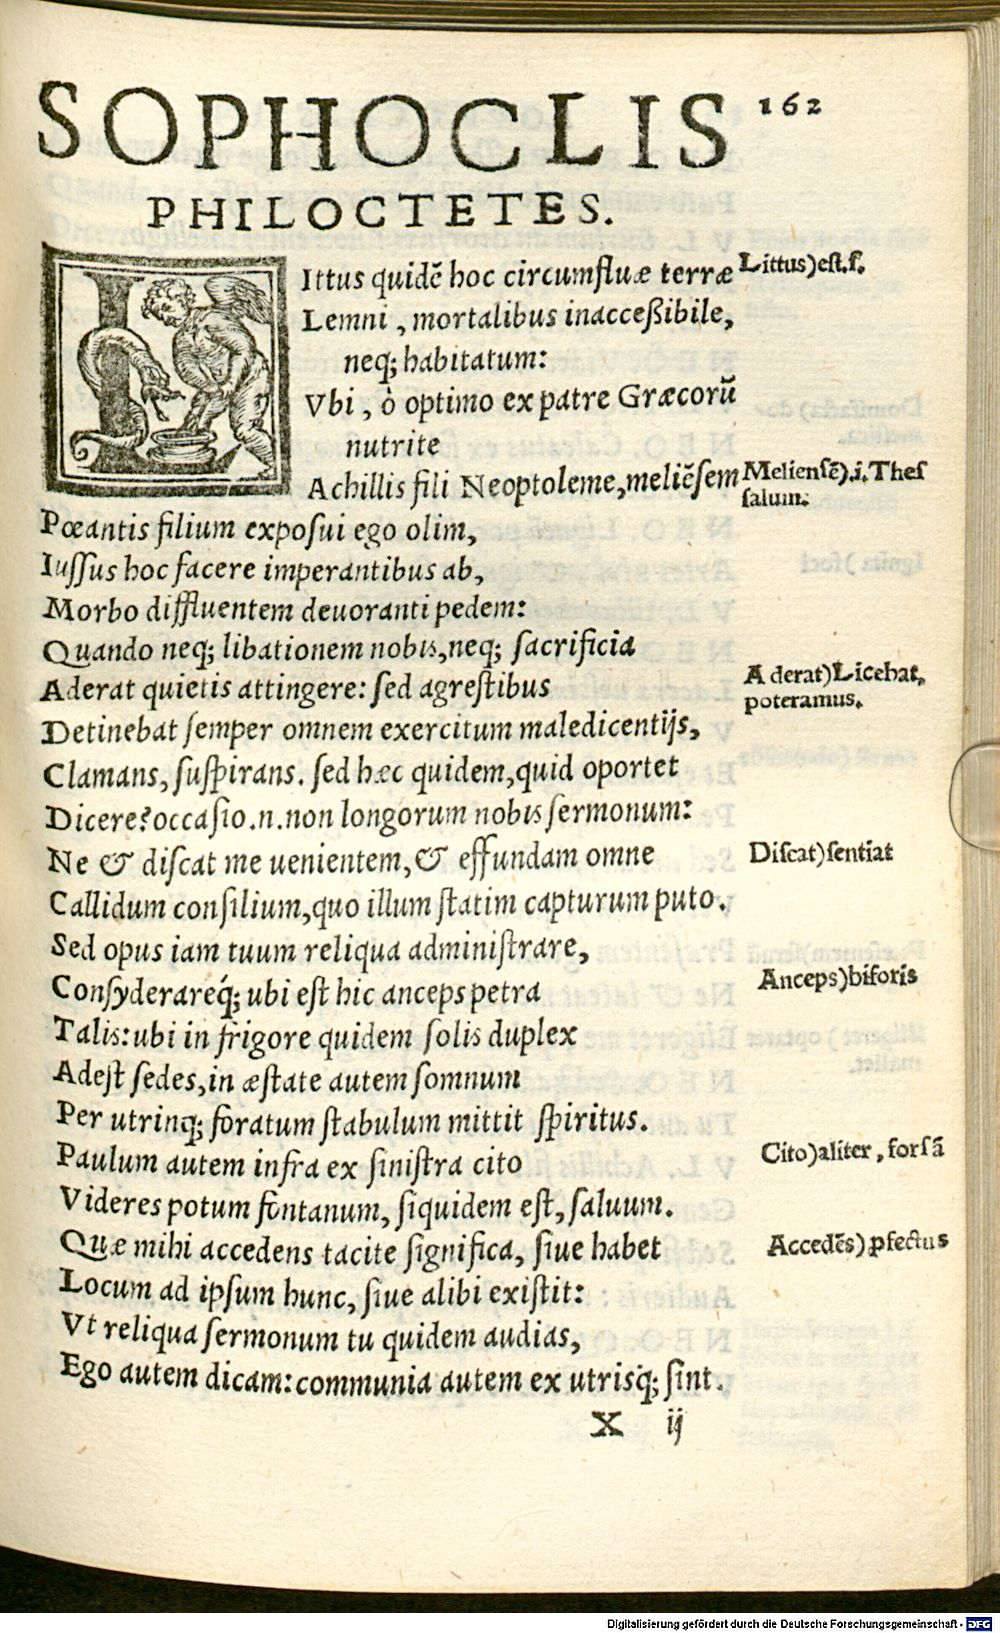 SOPHOCLIS 162
PHILOCTETES.
LIttus quidē hoc circumfluæ terræ
Littus)est.ſ.
Lemni, mortalibus inacceßibile,
neq; habitatum:
Vbi, ò optimo ex patre Græcorū
nutrite
Achillis fili Neoptoleme, meliēſem
Meliensē).i.Theſ
ſalum.
Pœantis filium expoſui ego olim,
Iuſſus hoc facere imperantibus ab,
Morbo diffluentem deuoranti pedem:
Quando neq; libationem nobis, neq; ſacrificia
Aderat quietis attingere: ſed agreſtibus
Aderat)Licebat,
poteramus.
Detinebat ſemper omnem exercitum maledicentijs,
Clamans, ſuſpirans. ſed hæc quidem, quid oportet
Dicere? occaſio.n.non longorum nobis ſermonum:
Ne & diſcat me uenientem, & effundam omne
Diſcat)ſentiat
Callidum conſilium, quo illum ſtatim capturum puto.
Sed opus iam tuum reliqua adminiſtrare,
Conſyderareq́; ubi eſt hic anceps petra
Anceps)biforis
Talis: ubi in frigore quidem ſolis duplex
Adeſt ſedes, in æſtate autem ſomnum
Per utrinq; foratum ſtabulum mittit ſpiritus.
Paulum autem infra ex ſiniſtra cito
Cito)aliter, forſā
Videres potum fontanum, ſiquidem eſt, ſaluum.
Quæ mihi accedens tacite ſignifica, ſiue habet
Accedēs)ꝓfectus
Locum ad ipſum hunc, ſiue alibi exiſtit:
Vt reliqua ſermonum tu quidem audias,
Ego autem dicam: communia autem ex utriſq́; ſint.
X ij
Digitalisierung gefördert durch die Deutsche Forschungsgemeinschaft - DFG